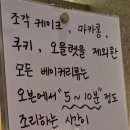 조각 케이크, 마카롱,
쿠키, 오믈렛을 제외한
모든 베이커리류는
오븐에서 "5~10분" 정도
조리하는 시간이